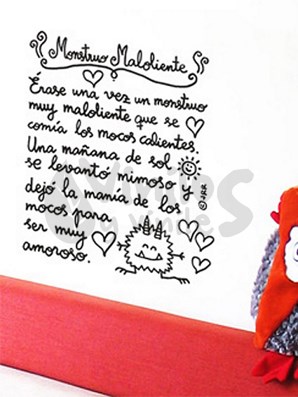 Monstruo Maloliente
Érase una vez un monstruo
muy maloliente que se
comía los mocos calientes.
Una mañana de sol
se levantó mimoso y
dejó la manía de los
mocos para
ser muy
amoroso.
©JRR